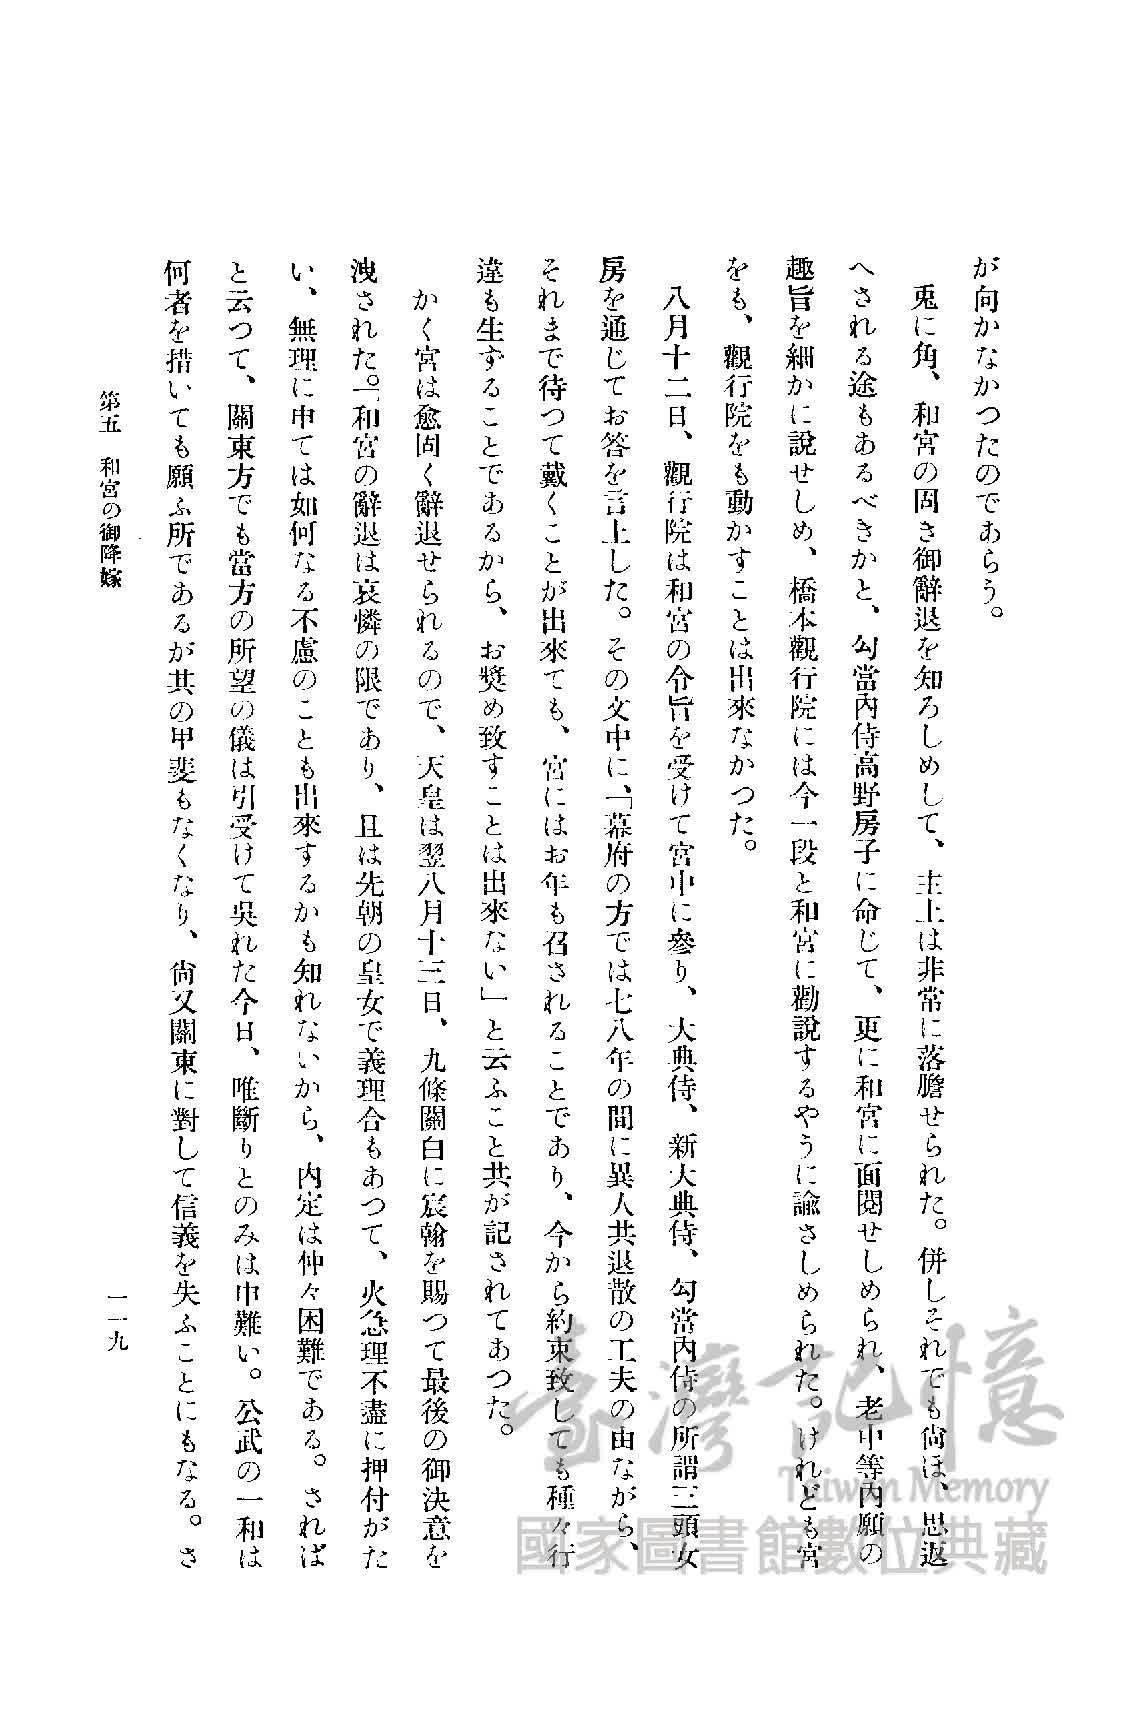 が向かなかつたのであらう。
兎に角、和宮の固き御辭退を知ろしめして、主上は非常に落膽せられた。併しそれでも尙ほ、思返
へされる途もあるべきかと、勾當內侍高野房子に命じて、更に和宮に面閱せしめられ、老中等內願の
趣旨を細かに說せしめ、橋本觀行院には今一段と和宮に勸說するやうに諭さしめられた。けれども宮
をも、觀行院をも動かすことは出來なかつた。
八月十二日、觀行院は和宮の令旨を受けて宮中に參り、大典侍、新大典侍、勾當內侍の所謂三頭女
房を通じてお答を言上した。その文中に、「幕府の方では七八年の間に異人共退散の工夫の由ながら、
それまで待つて戴くことが出來ても、宮にはお年も召されることであり、今から約束致しても種々行
違も生ずることであるから、お奬め致すことは出來ない」と云ふこと共が記されてあつた。
かく宮は愈固く辭退せられるので、天皇は翌八月十三日、九條關白に宸翰を賜つて最後の御決意を
洩された。「和宮の辭退は哀憐の限であり、且は先朝の皇女で義理合もあつて、火急理不盡に押付がた
い、無理に申ては如何なる不慮のことも出來するかも知れないから、內定は仲々困難である。されば
と云つて、關東方でも當方の所望の儀は引受けて吳れた今日、唯斷りとのみは申難い。公武の一和は
何者を措いても願ふ所であるが其の甲斐もなくなり、尙又關東に對して信義を失ふことにもなる。さ
第五 和宮の御降嫁
一一九
臺灣記憶
Taiwan Memory
國家圖書館數位典藏